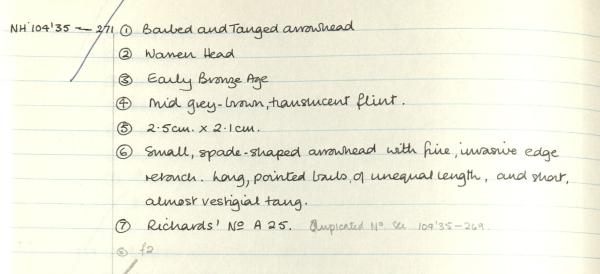 NH'104'35 — 271 ① Barbed and Tanged arrowhead
② Warren Head
③ Early Bronze Age
④ Mid grey-brown, translucent flint.
⑤ 2.5cm. x 2.1cm.
⑥ Small, spade-shaped arrowhead with fine, invasive edge
retouch. Long, pointed barbs, of unequal length, and short,
almost vestigial tang.
⑦ Richards' No A 25. Duplicated No. See 104'35-269.
⑧ f2